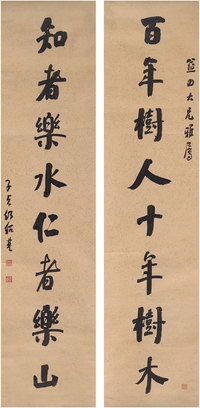 田大兄雅屬
百年樹人十年樹木
知者樂水仁者樂山
子貞何紹基